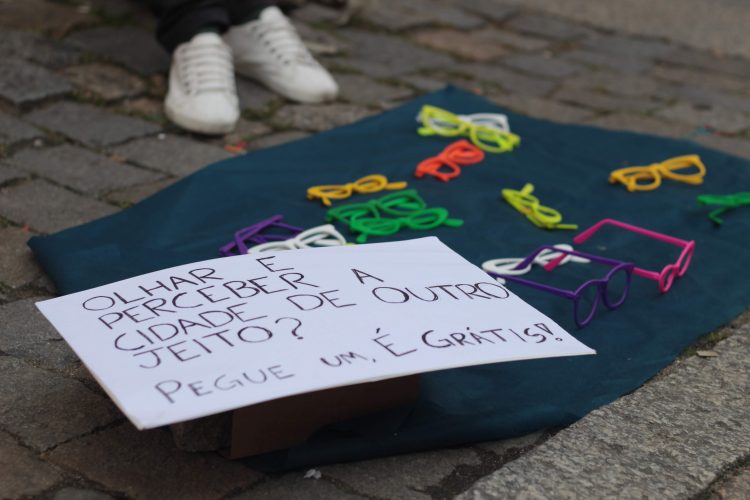 OLHAR E
PERCEBER A
CIDADE DE OUTRO
JEITO?
PEGUE UM, É GRÁTIS!